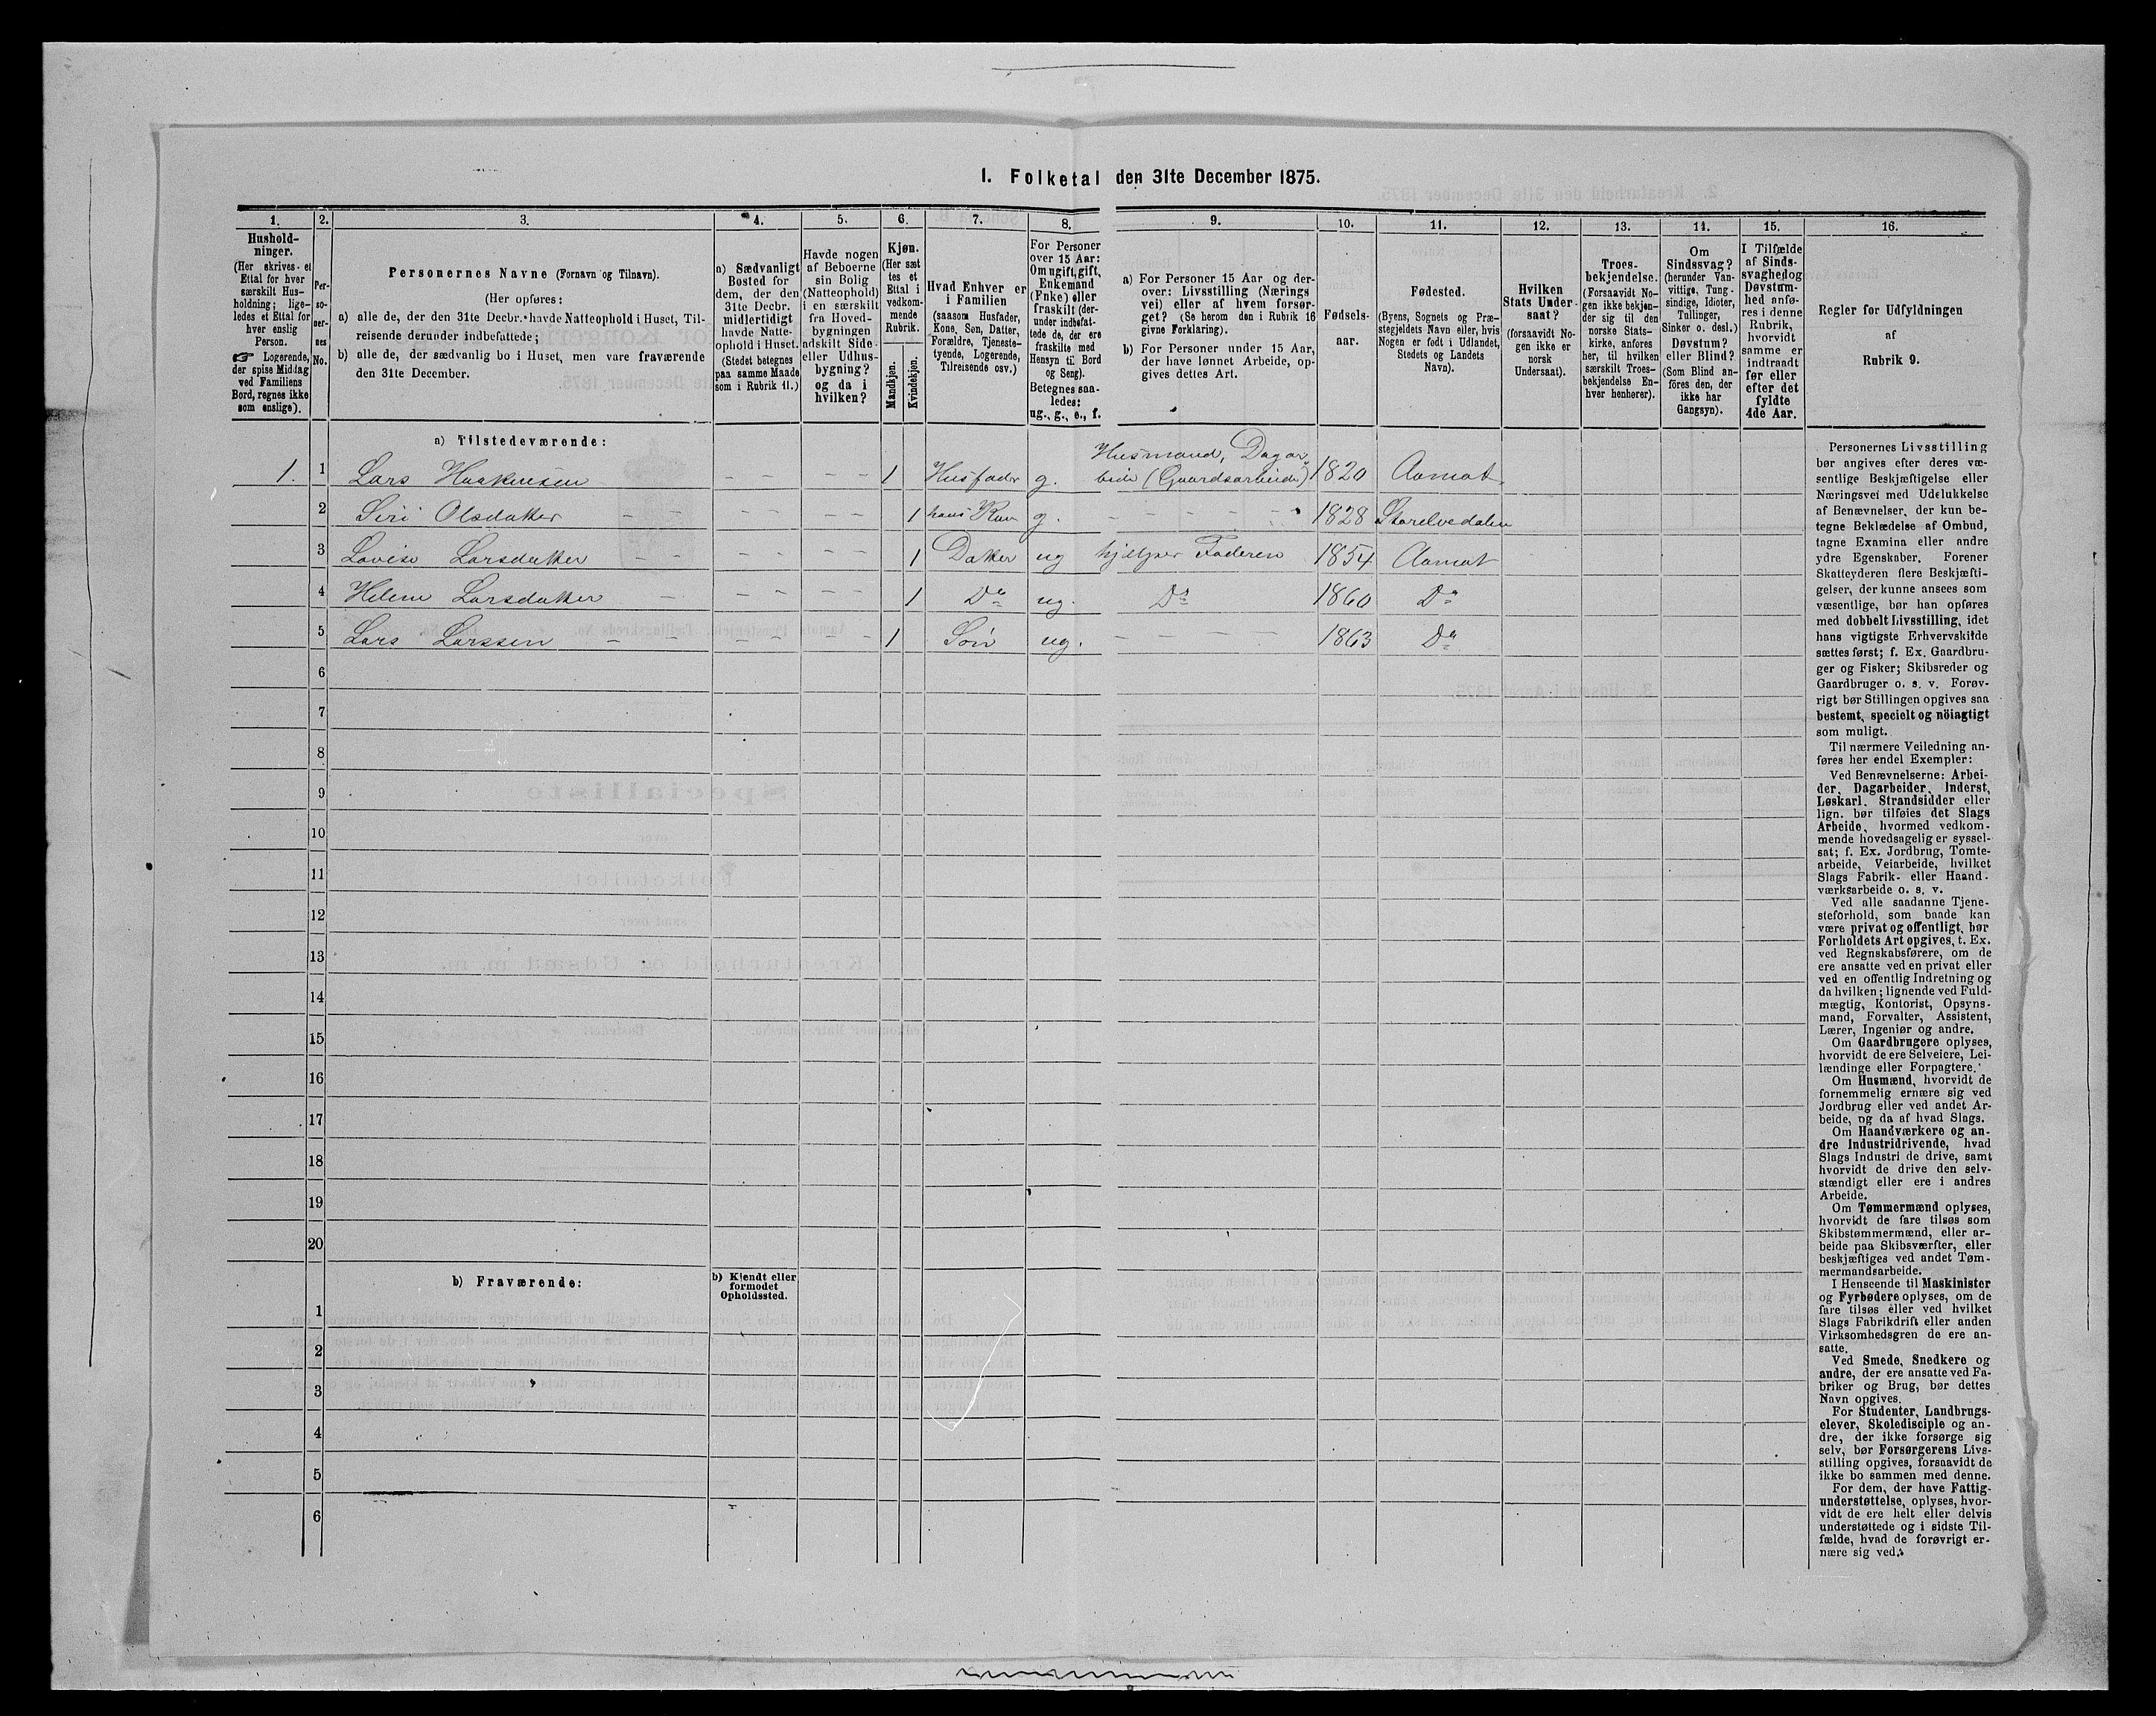 I. Folketal den 31te December 1875.
1.
Hushold-
ninger.
(Her skrives et
Ettal for hver
særskilt Hus-
holdning; lige-
ledes et Ettal for
hver enslig
Person.
☞ Logerende,
der spise Middag
ved Familiens
Bord, regnes ikke
som enslige).
2.
Per-
so-
ner-
nes
No.
3.
Personernes Navne (Fornavn og Tilnavn).
(Her opføres:
a) alle de, der den 31te Decbr. havde Natteophold i Huset, Til-
reisende derunder indbefattede;
b) alle de, der sædvanlig bo i Huset, men vare fraværende
den 31te December.
4.
a) Sædvanligt
Bosted for
dem, der den
31te Decbr.
midlertidigt
havde Natte-
ophold i Huset.
(Stedet betegnes
paa samme Maade
som i Rubrik 11.)
5.
Havde nogen
af Beboerne
sin Bolig
(Natteophold)
i en særskilt
fra Hoved-
bygningen
adskilt Side-
eller Udhus-
bygning?
og da i
hvilken?
6.
Kjøn.
(Her sæt
tes et
Ettal i
vedkom-
mende
Rubrik.
Mandkjøn.
Kvindekjøn.
7.
Hvad Enhver er
i Familien
(saasom Husfader,
Kone, Søn, Datter,
Forældre, Tjeneste-
tyende, Logerende,
Tilreisende osv.)
8.
For Personer
over 15 Aar:
Om ugift, gift,
Enkemand
(Enke) eller
fraskilt (der-
under indbefat-
tede de, der ere
fraskilte med
Hensyn til Bord
og Seng).
Betegnes saa-
ledes:
ug., g., e., f.
9.
a) For Personer 15 Aar og der-
over: Livsstilling (Nærings
vei) eller af hvem forsør-
get? (Se herom den i Rubrik 16
givne Forklaring).
b) For Personer under 15 Aar,
der have lønnet Arbeide, op-
gives dettes Art.
10.
Fødsels-
aar.
11.
Fødested.
(Byens, Sognets og Præ-
stegjeldets Navn eller, hvis
Nogen er født i Udlandet,
Stedets og Landets
Navn).
12.
Hvilken
Stats Under-
saat?
(forsaavidt No-
gen ikke er
norsk
Undersaat).
13.
Troes-
bekjendelse.
(Forsaavidt No-
gen ikke bekjen-
der sig til den
norske Stats-
kirke, anføres
her, til hvilken
særskilt Troes-
bekjendelse En-
hver henhører).
14.
Om
Sindssvag?
(herunder Van-
vittige, Tung-
sindige, Idioter,
Tullinger,
Sinker o. desl.)
Døvstum?
eller Blind?
(Som Blind an-
føres den, der
ikke har
Gangsyn).
15.
I Tilfælde
af Sinds-
svaghed og
Døvstum-
hed anfø-
res i denne
Rubrik,
hvorvidt
samme er
indtraadt
før eller
efter det
fyldte
4de Aar.
16.
Regler for Udfyldningen
af
Rubrik 9.
a) Tilstedeværende:
1. 1 Lars Haakensen – – – – 1 Husfader g. Husmand, Dagar-
beide (Gaardsarbeide) 1820 Aamot
2 Siri Olsdatter – – – – – – 1 hans Kone g. – – – – – 1828 Storelvedalen
3 Lovise Larsdatter – – – – – – 1 Datter ug hjelper Faderen 1854 Aamot
4 Helene Larsdatter – – – – – 1 Do ug. Do 1860 Do
5 Lars Larssen – – – – – – – 1 Søn ug. – – – – 1863 Do
6
7
8
9
10
11
12
13
14
15
16
17
18
19
20
b) Fraværende:
b) Kjendt eller
formodet
Opholdssted.
1
2
3
4
5
6
Personernes Livsstilling
bør angives efter deres væ-
sentlige Beskjæftigelse eller
Næringsvei med Udelukkelse
af Benævnelser, der kun be-
tegne Beklædelse af Ombud,
tagne Examina eller andre
ydre Egenskaber. Forener
Skatteyderen flere Beskjæfti-
gelser, der kunne ansees som
væsentlige, bør han opføres
med dobbelt Livsstilling, idet
hans vigtigste Erhvervskilde
sættes først; f. Ex. Gaardbru-
ger og Fisker; Skibsreder og
Gaardbruger o. s. v. Forøv-
rigt bør Stillingen opgives saa
bestemt, specielt og nöiagtigt
som muligt.
Til nærmere Veiledning an-
føres her endel Exempler:
Ved Benævnelserne: Arbei-
der, Dagarbeider, Inderst,
Løskarl, Strandsidder eller
lign. bør tilføies det Slags
Arbeide, hvormed vedkom-
mende hovedsagelig er syssel-
sat; f. Ex. Jordbrug, Tomte-
arbeide, Veiarbeide, hvilket
Slags Fabrik- eller Haand-
værksarbeide o. s. v.
Ved alle saadanne Tjene-
steforhold, som baade kan
være privat og offentligt, bør
Forholdets Art opgives, t. Ex.
ved Regnskabsførere, om de
ere ansatte ved en privat eller
ved en offentlig Indretning og
da hvilken; lignende ved Fuld-
mægtig, Kontorist, Opsyns-
mand, Forvalter, Assistent,
Lærer, Ingeniør og andre.
Om Gaardbrugere oplyses,
hvorvidt de ere Selveiere, Lei-
lændinge eller Forpagtere.
Om Husmænd, hvorvidt de
fornemmelig ernære sig ved
Jordbrug eller ved andet Ar-
beide, og da af hvad Slags.
Om Haandværkere og an-
dre Industridrivende, hvad
Slags Industri de drive, samt
hvorvidt de drive den selv-
stændigt eller ere i andres
Arbeide.
Om Tømmermænd oplyses,
hvorvidt de fare tilsøs som
Skibstømmermænd, eller ar-
beide paa Skibsværfter, eller
beskjæftiges ved andet Tøm-
mermandsarbeide.
I Henseende til Maskinister
og Fyrbødere oplyses, om de
fare tilsøs eller ved hvilket
Slags Fabrikdrift eller anden
Virksomhedsgren de ere an-
satte.
Ved Smede, Snedkere og
andre, der ere ansatte ved Fa-
briker og Brug, bør dettes
Navn opgives.
For Studenter, Landbrugs-
elever, Skoledisciple og an-
dre, der ikke forsørge sig
selv, bør Forsørgerens Livs-
stilling opgives, forsaavidt de
ikke bo sammen med denne.
For dem, der have Fattig-
understøttelse, oplyses, hvor-
vidt de ere helt eller delvis
understøttede og i sidste Til-
fælde, hvad de forøvrigt er-
nære sig ved.